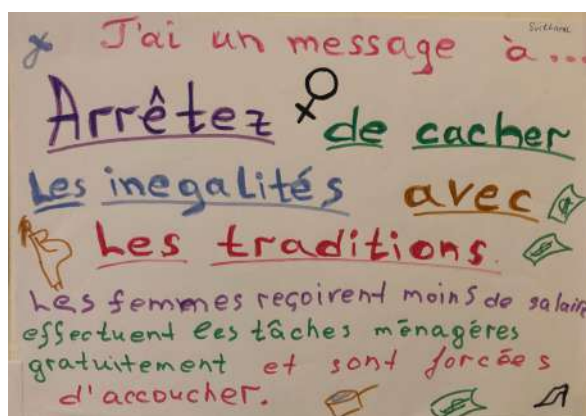 Svitlana
J'ai un message à...
Arrêtez de cacher
Les inegalités avec
Les traditions.
Les femmes reçoirent moins de salaire
effectuent les tâches ménagères
gratuitement et sont forcées
d'accoucher.